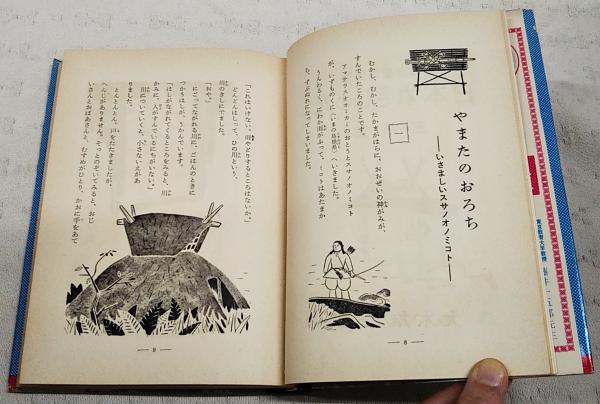 やまたのおろち
――いさましいスサノオノミコト――
一
むかし、むかし、たかまがはらに、おおぜいの神がみが、
すんでいたころのことです。
アマテラスオオミカミのおとうとスサノオノミコト
が、いずものくに(いまの島根県)へいきました。
うんわるく、にわか雨がふって、ミコトはあたまか
ら、ずぶぬれになってしまいました。
― 8 ―
「これはいけない。雨やどりするところはないか。」
どんどんはしって、ひの川という、
川のきしにでました。
「おや。」
にごってながれる川に、ごはんのときに
つかうはしが、うかんでいます。
「はしがながれてくるところをみると、川
かみに、人がすんでいるにちがいない。」
川についていくと、小さないえがあ
りました。
とんとんとん。戸をたたきましたが、
へんじがありません。そっとのぞいてみると、おじ
いさんとおばあさんと、むすめがひとり、かおに手をあて
― 9 ―
東京教育大学教授